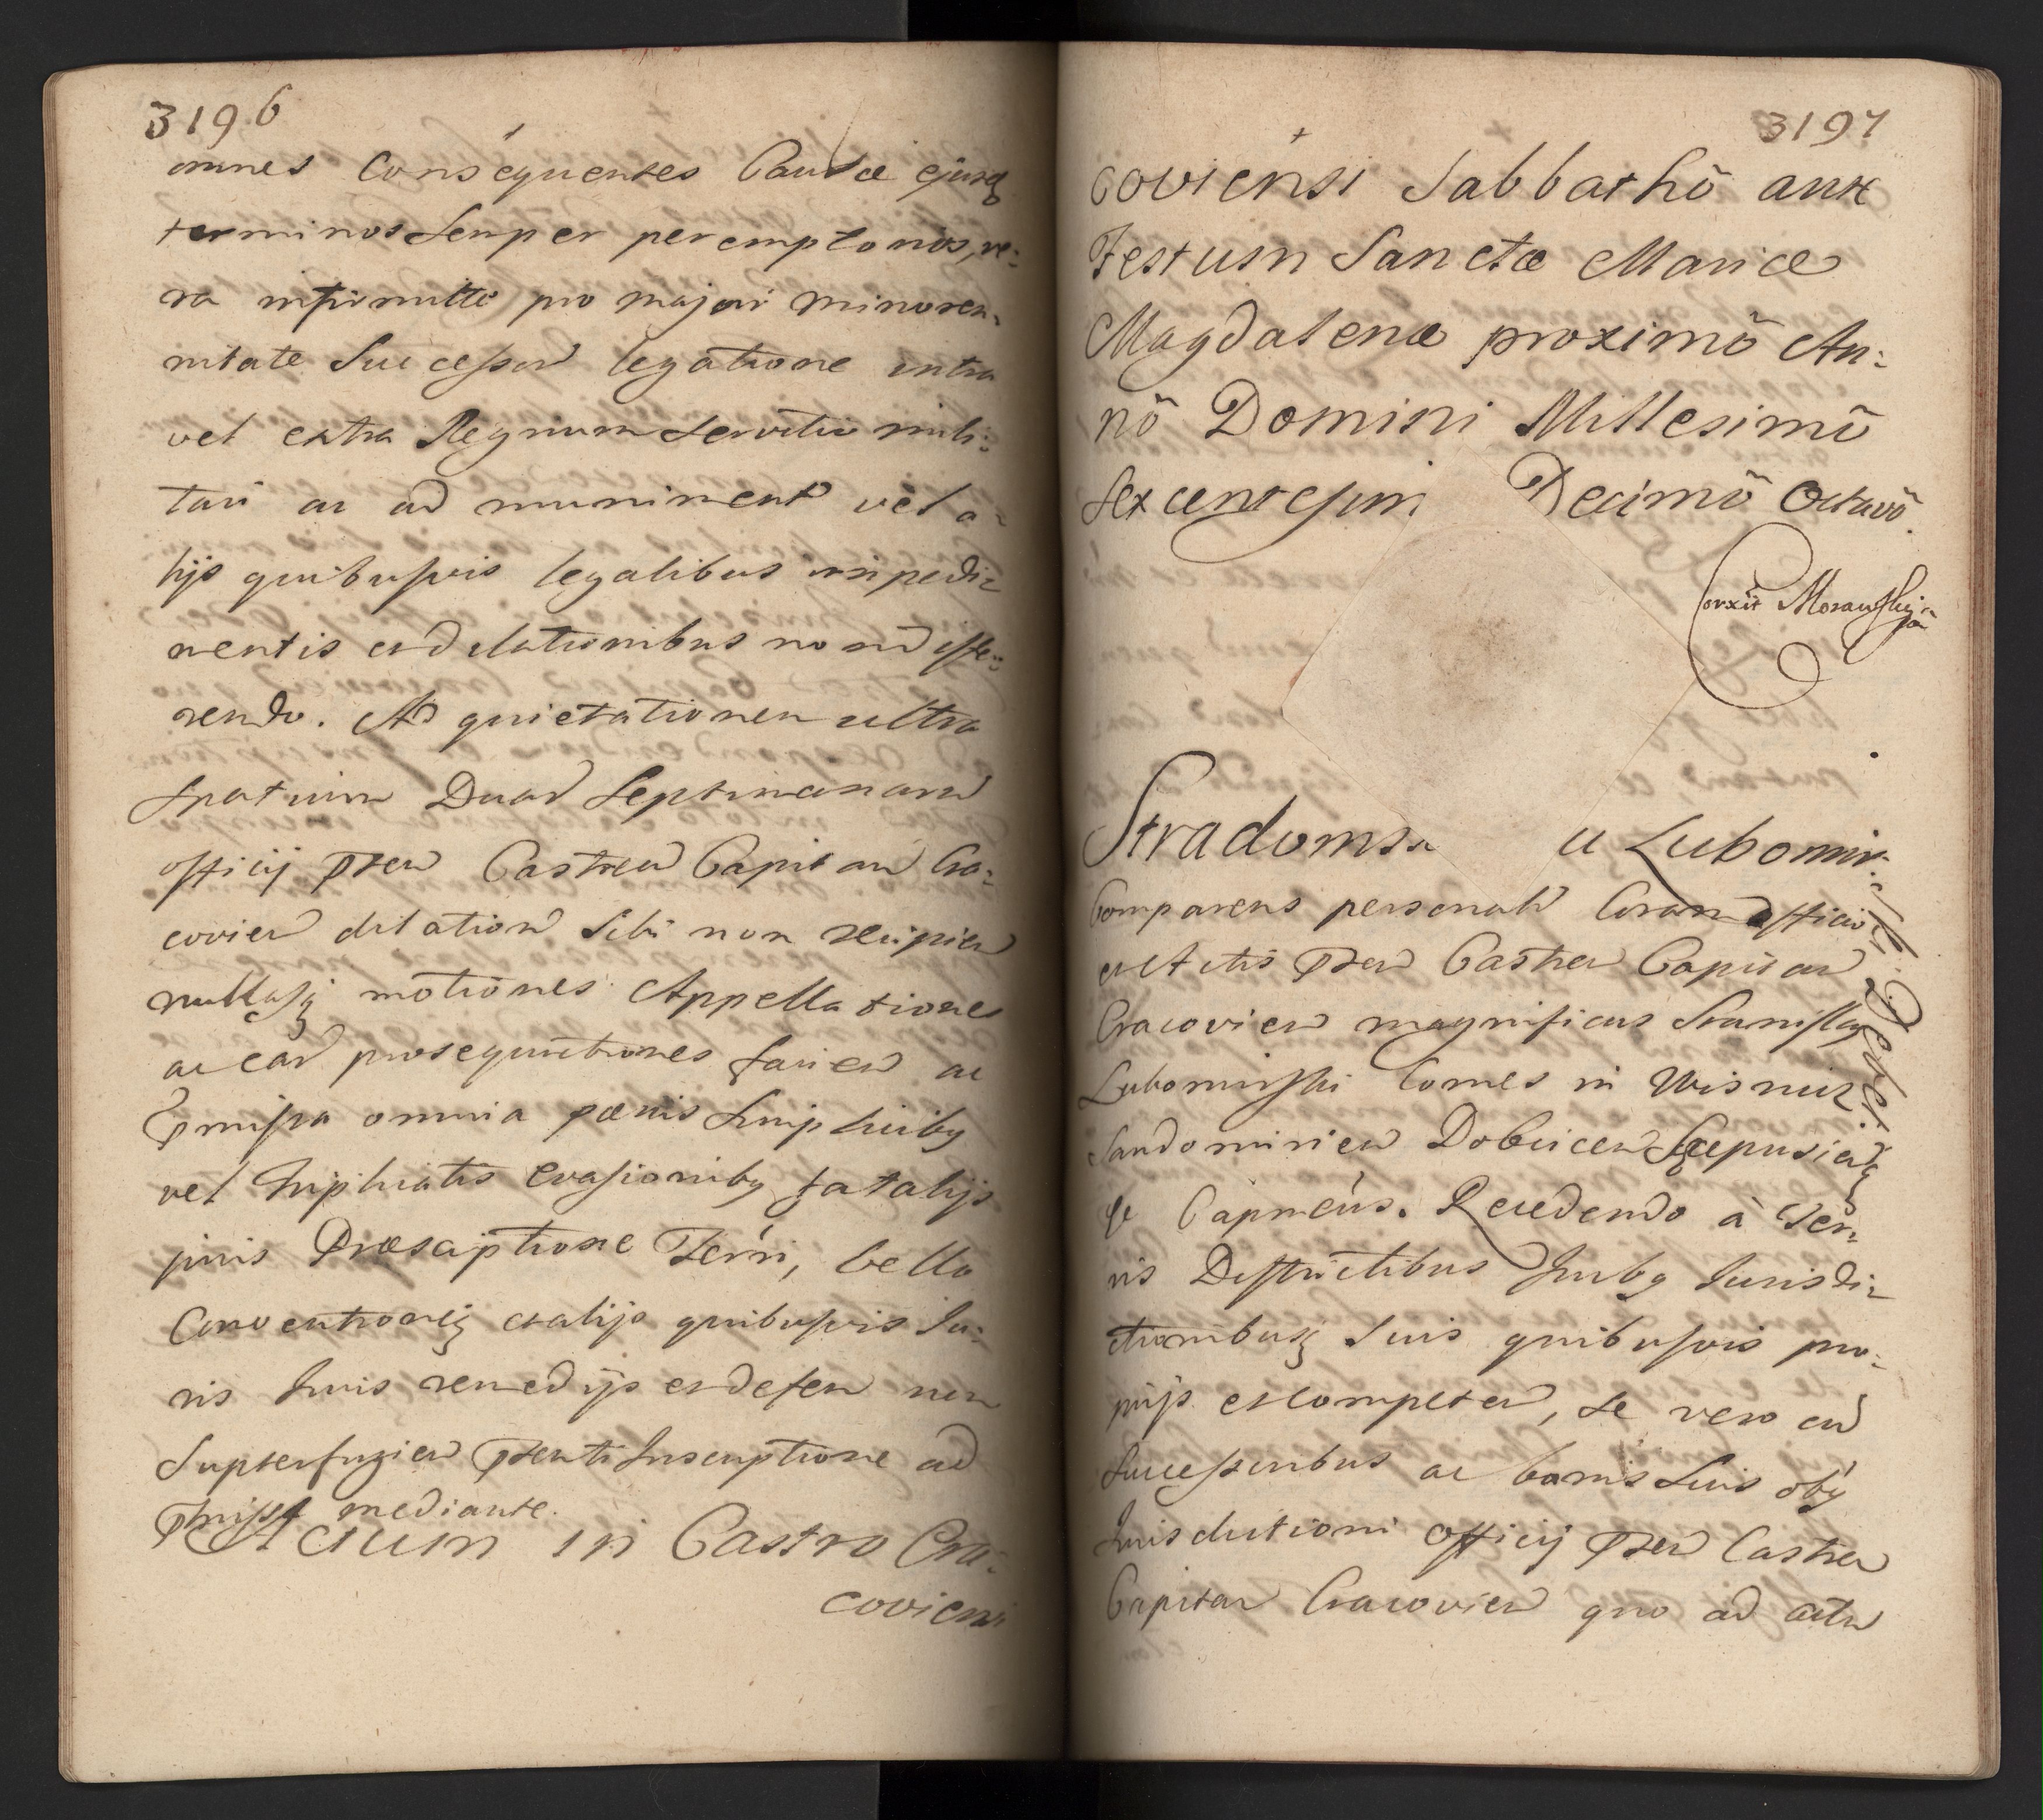 3196
omnes Consequentes Causæ ejusq
terminos Semper peremptorios, ve:
ra infirmitte pro majori minoren:
nitate Succeſsord legatione intra
vel extra Regnum Servitio mili:
tari ac ad muniment vel a:
lijs quibusvis legalibus impedi:
mentis ac dilationibus non diffe:
rendo. Ad quietationem ultra
spatium Duad Septimanard
officij Pten Castren Capitan Cra:
covien dilation Sibi non recipien
nullasq motiones Appellationes
ac ead prosequutiones facien ac
Pmiſsa omnia pœnis Simplicibq
vel triplicatis evasionibq fatalijs
juris Præscriptione Terri, bello
Conventioneq et alijs quibusvis Ju:
ris Suis remedijs et defen non
Supterfugien Ptenti Inscriptione ad
Pmiſsa mediante.
Actum in Castro Cra:
coviensi
3197
coviensi Sabbathô ante
Festum Sanctæ Mariæ
Magdalenæ proximô An:
nô Domini Millesimô
Sexcentesim Decimô Octavô.
Corxit Morawsky
Stradomsk a Lubomir:
ski. Debet
Comparens personalr Coram officio
et Actis Pten Castren Capitan
Cracovien magnificus Stanislaq
Lubomirski Comes in Wisnicz
Sandomirien Dobcicen Scepusien
q Capneus. Recedendo à Ter:
ris Districtibus Juribq Jurisdi:
ctionibusq Suis quibusvis pro:
prijs et competen, Se vero cu
Succeſsoribus ac bonis Suis oibq
Jurisdictioni officij Pten Castren
Capitan Cracovien quo ad actu